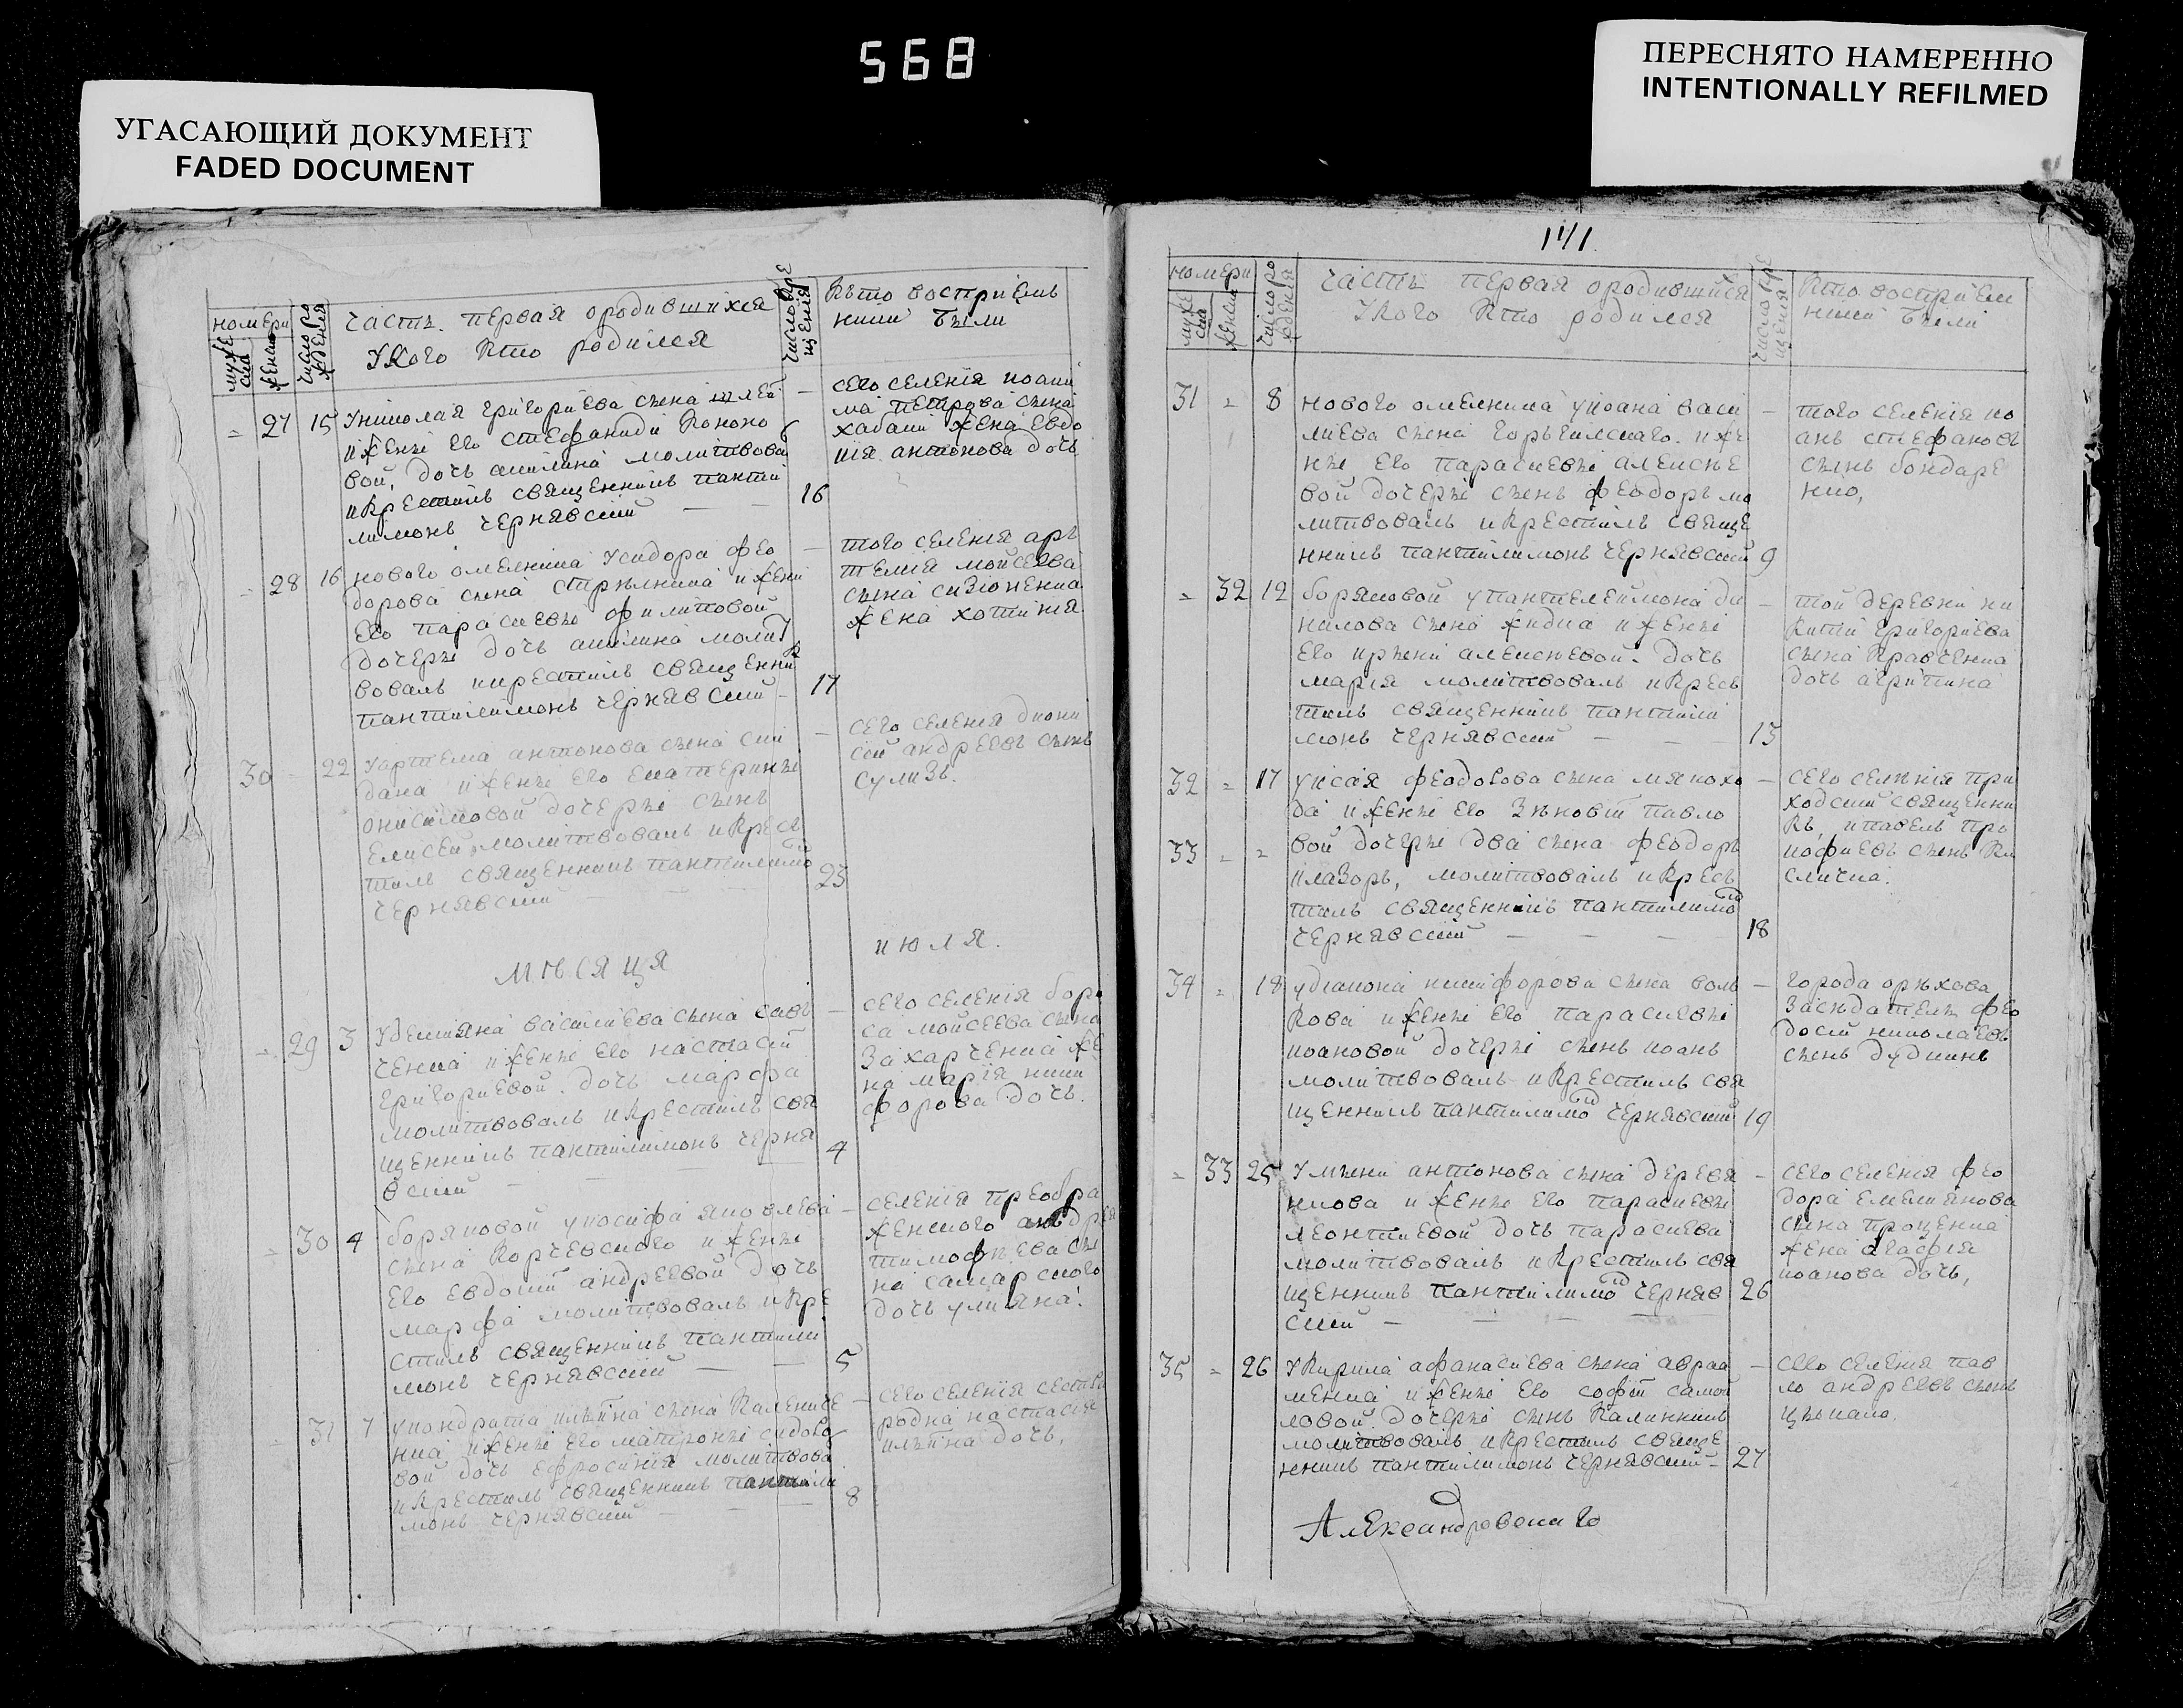 568
УГАСАЮЩИЙ ДОКУМЕНТ
FADED DOCUMENT
ПЕРЕСНЯТО НАМЕРЕННО
INTENTIONALLY REFILMED
номери
муже
ска
женска
число ро
жденія
часть первая ородившихся
Укого кто родился
число кре
щенія
Кто восприем
ники были
= 27 15 Униколая григориева сына шлей
ижены его стефаниди Конono
вой, дочь акилина молитвова
икрестилъ священникъ панти
лимонъ чернявский — — 16
— сего селенія иоаки
ма петрова сына
хабани жена евдо
кія антонова дочь
= 28 16 нового омелника Усидора фео
дорова сына стрелника ижени
его параскеви филиповой
дочери дочь акилина молит
вовалъ икрестилъ священник
пантилимонъ чернявский — 17
— того селенія арь
темія мойсеева
сына сизіоненка
жена хотинія
30 = 22 Уартема антонова сына ски
дана ижены его екатерины
онисимовой дочери сынъ
Елисей молитвовалъ икрес
тилъ священникъ пантилимо
чернявский — — 23
— сего селенія диони
сій андреевъ сынъ
сулизь.
мѣсяця
июля.
= 29 3 Удеміяна василиева сына савь
ченка ижены его настасіи
григориевой. дочь марфа
молитвовалъ икрестилъ свя
щенникъ пантилимонъ черня
вский — — — 4
— сего селенія бори
са мойсеева сына
захарченка же
на марія ники
форова дочь.
= 30 4 боряковой уиосифа яковлева
сына Корчевского ижены
его евдокіи андреевой дочь
марфа молитвовалъ икре
стилъ священникъ пантили
монъ чернявский — — 5
— селенія преобра
женского андрея
тимофеева сы
на самарского
дочь улияна.
= 31 7 укондрата илина сына Калениче
нка ижены его матроны сидоро
вой дочь ефросинія молитвова
икрестилъ священникъ пантили
монъ чернявский — — 8
— сего селенія сестра
родна настасія
илина дочь.
141
номери
муже
ска
женска
число ро
жденія
часть первая ородившийся
Укого кто родился
число кре
щенія
Кто восприем
ники были
31 = 8 нового омелника уиоана васи
лиева сына горькилского. иже
ны его параскевы алексие
вой дочеры сынъ феодоръ мо
литвовалъ икрестилъ свяще
нникъ пантилимонъ чернявский 9
— того селенія ио
анъ стефановъ
сынъ бондаре
нко,
= 32 12 боряковой упантелеймона да
нилова сына жидка иженыі
его ирыни алексиевой. дочь
марія молитвовалъ икресь
тилъ священникъ пантили
монъ чернявский — — 13
— той деревни ни
кити григориева
сына Кравченка
дочь агрипина
32 = 17 уисая феодосова сына мянохо
да ижены его зѣновіи павло
33 = = вой дочеры два сына феодоръ
илазорь, молитвовалъ икресь
тилъ священникъ пантилимо
чернявский — — — 18
— сего селенія при
ходский священни
къ, ипавелъ про
кофиевъ сынъ Кы
слична.
34 = 18 удіакона никифорова сына воль
кова ижены его параскевы
иоановой дочеры сынъ иоанъ
молитвовалъ икрестилъ свя
щенникъ пантилимо чернявский 19
— города орѣхова
засѣдатель фео
досій николаевъ
сынъ дудникъ
= 33 25 Умыни антонова сына деревя
нкова ижены его параскевы
леонтиевой дочь параскева
молитвовалъ икрестилъ свя
щенникъ пантилимо черняв 26
ский — — — —
— сего селенія фео
дора емелиянова
сына проценка
жена агафія
иоанова дочь,
35 = 26 Укирила афанасиева сына авраа
менка ижены его софіи самой
ловой дочеры сынъ Калинникъ
молитвовалъ икрестилъ свяще
нникъ пантилимонъ чернявский — 27
— сего селенія пав
ло андреевъ сынъ
цыкало.
Александровскаго